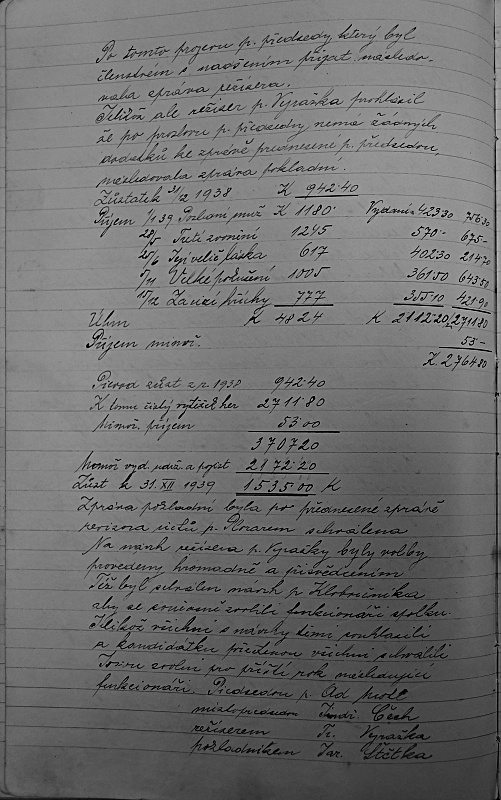 Po tomto projevu p. předsedy, který byl
členstvem s nadšením přijat následo-
vala zpráva režiséra.
Jelikož ale režiser p. Vyraška prohlásil
že po proslovu p. předsedy, nemá žádných
dodatků ke zprávě přednesené p. předsedou,
následovala zpráva pokladní.
Zůstatek 31/12 1938 K 942·40
Příjem 1/1 39 Pozlam muž K 1180· Vydání 423·30 756·30
28/5 Třetí zvonění 1245 570- 675-
25/6 Její veličláska 617 402·30 214·70
5/11 Velké pokušení 1005 361·50 643·50
17/12 Za cizí hříchy 777 355·10 421·90
Úhrn K 4824 K 2112·20 2711·80
Příjem mimoř. 53-
K. 2764·80
Převod zůst z r. 1938 942·40
K tomu čistý výtěžek her 2711·80
Mimoř. příjem 53·00
3707·20
Mimoř vyd. udrž. a pojist 2172·20
Zůst k 31. XII 1939 1535·00 K
Zpráva pokladní byla po přednesené zprávě
revisora účtů p. schválena
Na návrh režisera p. Vyrašky byly volby
provedeny hromadně a přisvědčením
Též byl schválen návrh p. Klobočníka
aby se soukromí zvolili funkcionáři spolku.
Jelikož všichni s návrhy těmi souhlasili
a kandidátku předenou všichni schválili
zvoleni pro příští rok následující
funkcionáři. Předsedou p. Ad
místopředsedou Jindř. Čech
režiserem Fr. Vyraška
pokladníkem Jar. Štětka